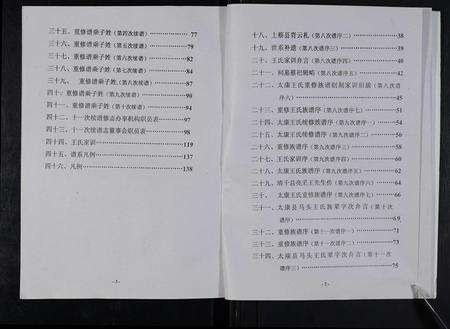 三十五、重修谱乘子姓（第四次续谱）……77
三十六、重修谱乘子姓（第五次续谱）……79
三十七、重修谱乘子姓（第六次续谱）……82
三十八、重修谱乘子姓（第七次续谱）……84
三十九、重修谱乘子姓（第八次续谱）……87
四十、重修谱乘子姓（第九次续谱）……90
四十一、重修谱乘子姓（第十次续谱）……94
四十二、十一次续谱修志办事机构职员表……97
四十三、十一次续谱志董事会职员表……98
四十四、王氏家训……119
四十五、谱系凡例……137
四十六、凡例……138
- 3 -
十八、上蔡县青云札（第八次谱序二）……38
十九、世系补遗（第八次谱序三）……39
二十、王氏家训弁言（第八次谱序四）……40
二十一、祠墓祭祀则略（第八次谱序五）……42
二十二、太康王氏重修族谱创制家训旧规（第八次谱
序六）……45
二十三、重修王氏族谱序（第八次谱序七）……51
二十四、太康王氏续修族谱序（第九次谱序一）……54
二十五、太康王氏续修族谱序（第九次谱序二）……56
二十六、重修族谱序（第九次谱序三）……58
二十七、王氏家训序（第九次谱序四）……60
二十八、太康王氏族谱序（第九次谱序五）……62
二十九、清十品亮采王先生传（第九次谱序六）……64
三十、太康王氏重修族谱序（第九次谱序七）……66
三十一、太康县马头王氏族辈字次弁言（第十次
谱序）……69
三十二、重修族谱序（第十一次谱序一）……71
三十三、重修族谱序（第十一次谱序二）……73
三十四、太康县马头王氏辈字次弁言（第十一次
谱序三）……75
- 2 -